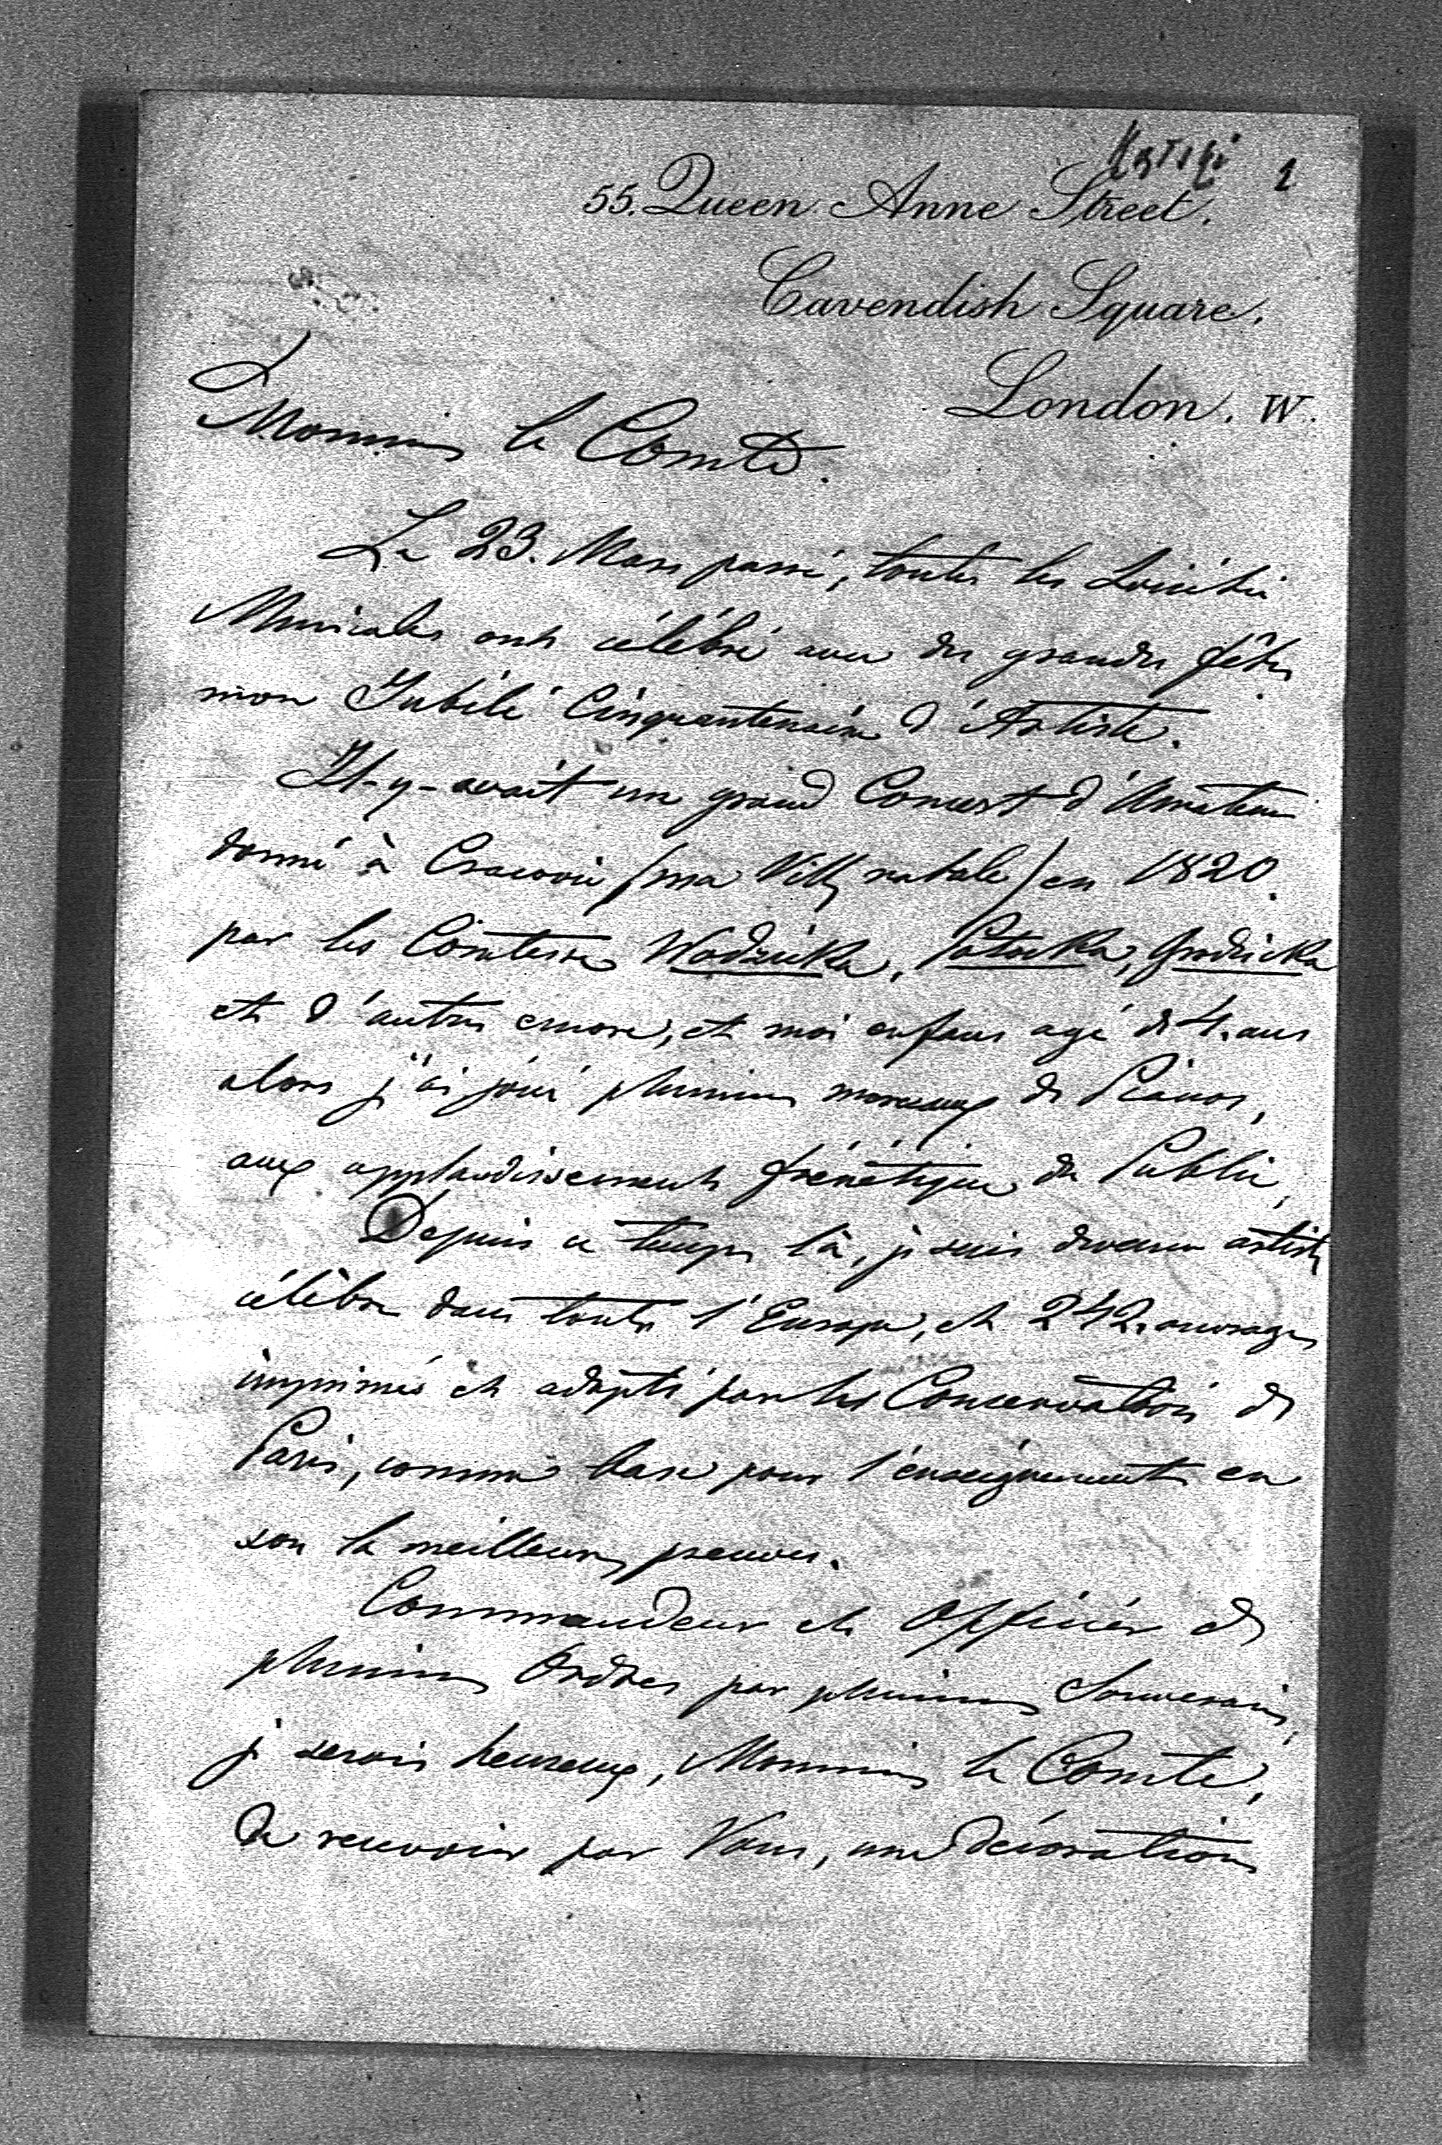 1
55. Queen Anne Street.
Cavendish Square.
London. W.
Monsieur le Comte.
Le 23. Mars passé, toutes les Sociétés
Musicales ont célébré avec des grandes fêtes
mon Jubilé Cinquantenaire d'Artiste.
Il-y-avait un grand Concert d'Amateur
donné à Cracovie (ma Ville natale) en 1820.
par les Comtesses Wodzicka, Potocka, Grodzicka
et d'autres encore, et moi enfant agé de 4. ans
alors j'ai joué plusieurs morceaux de Piano,
aux applaudissements frénétique du Public,
Depuis ce temps là, je suis devenu artiste
célèbre dans toute l'Europe, et 242. ouvrages
imprimés et adopté par les Conservatoir de
Paris, comme base pour l'enseignement en
son la meilleure preuves.
Commandeur et Officier de
plusieurs Ordres par plusieurs Souverains,
je serais heureux, Monsieur le Comte,
de recevoir par Vous, une décoration